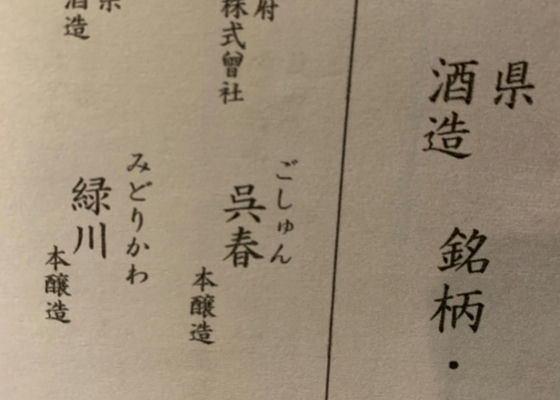 県
酒造　銘柄・
府
株式會社
ごしゅん
呉春
本醸造
県
酒造
みどりかわ
緑川
本醸造